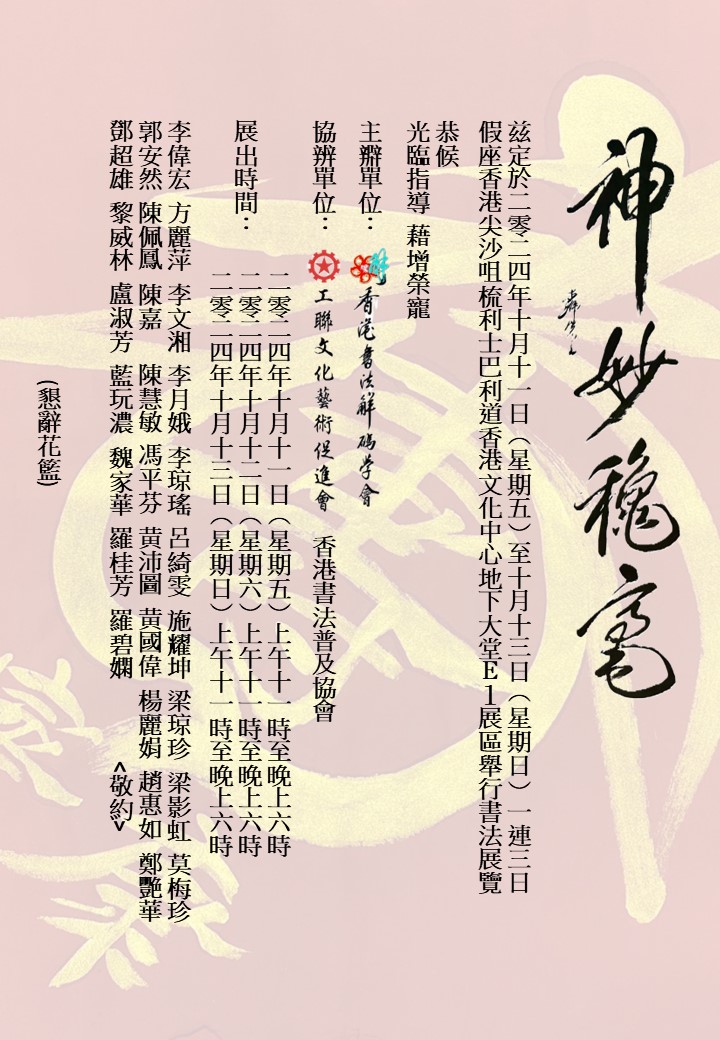 神妙穐毫
茲定於二零二四年十月十一日（星期五）至十月十三日（星期日）一連三日
假座香港尖沙咀梳利士巴利道香港文化中心地下大堂E1展區舉行書法展覽
恭候
光臨指導 藉增榮寵
主辦單位： 香港書法解碼学會
協辦單位： 工聯文化藝術促進會 香港書法普及協會
展出時間：
二零二四年十月十一日（星期五）上午十一時至晚上六時
二零二四年十月十二日（星期六）上午十一時至晚上六時
二零二四年十月十三日（星期日）上午十一時至晚上六時
李偉宏 方麗萍 李文湘 李月娥 李琼瑤 呂綺雯 施耀坤 梁琼珍 梁影虹 莫梅珍
郭安然 陳佩鳳 陳嘉 陳慧敏 馮平芬 黃沛圖 黃國偉 楊麗娟 趙惠如 鄭艷華
鄧超雄 黎威林 盧淑芳 藍玩濃 魏家華 羅桂芳 羅碧嫻 <敬約>
(懇辭花籃)